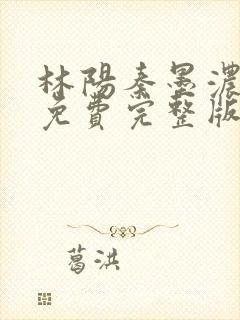 林陽秦墨濃
免費完整版
葛洪